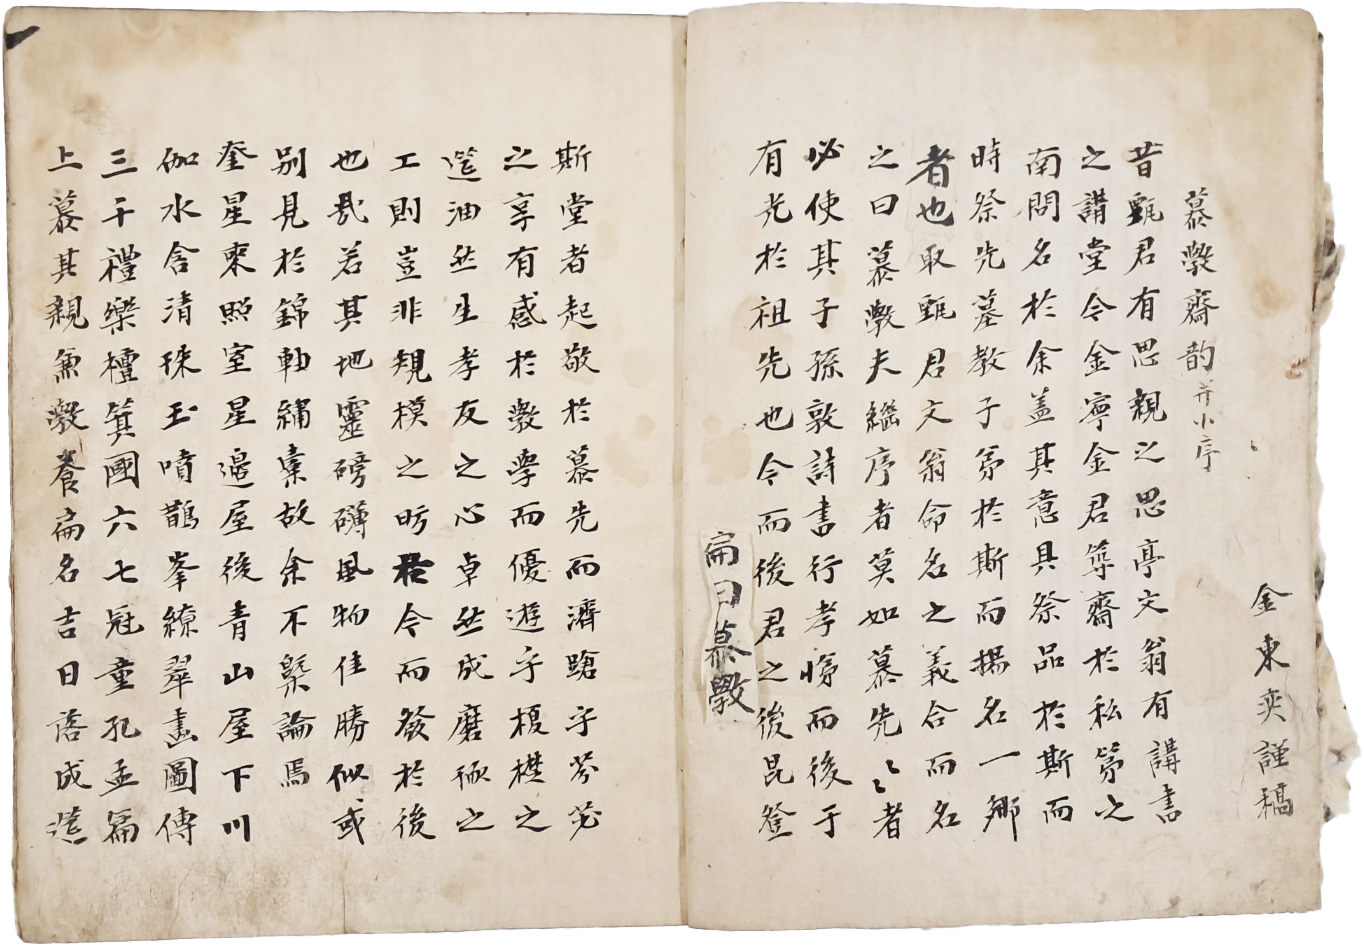 金東奕謹稿
慕斅齋韵并小序
昔甄君有思親之思亭文翁有講書
之講堂今金寧金君築齋於私第之
南問名於余盖其意具祭品於斯而
時祭先墓教子弟於斯而揚名一鄉
者也取甄君文翁命名之義合而名
之曰慕斅夫繼序者莫如慕先〻者
必使其子孫敦詩書行孝悌而後于
有光於祖先也今而後君之後昆登
扁曰慕斅
斯堂者起敬於慕先而濟蹌乎芬苾
之享有感於斅學而優遊乎榎檚之
筵油然生孝友之心卓然成磨琢之
工則豈非規模之昉於今而發於後
也哉若其地靈磅礴風物佳勝似或
別見於錦軸繡橐故余不槩論焉
奎星東照室星邊屋後青山屋下川
伽水含清珠玉噴鵲峯繚翠畵圖傳
三千禮樂檀箕國六七冠童孔孟篇
上慕其親兼斅養扁名吉日落成筵